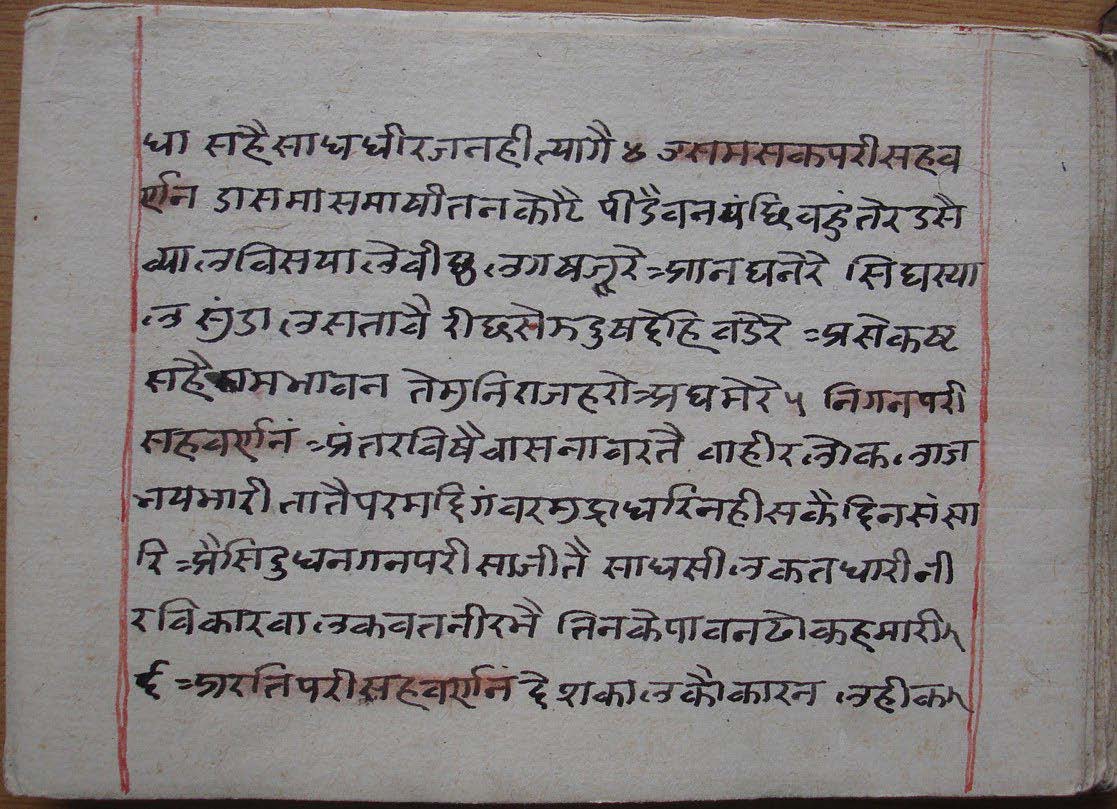 धा सहै साध धीरज नही त्यागै ४ डसमसकपरीसहव
र्णन डासमास माषी तन कोटै पीडै वन पंछि वहुं तेरे डसै
व्याल विसयाले वीछू लगै षजूरे आन घनेरे सिंघ स्या
ल सुंडाल सतावै रीछ रोझ दुष देहि वडेरे असे कष्ट
सहै सम भावन ते मुनिराज हरो अघ मेरे ५ निगनपरी
सहवर्णनं अंतर विषै वासना वरतै वाहीर लोक लाज
भय भारी तातै परम दिगंवर मुद्रा धरि नही सकै दिन संसा
रि अैसि दुधर नगन परीसा जीतै साध सील वत धारी नी
रविकार वालकवत नीरभै तिनके पावन ढोक हमारी
६ अरतिपरीसहवर्णनं देश काल कौ कारन लही क